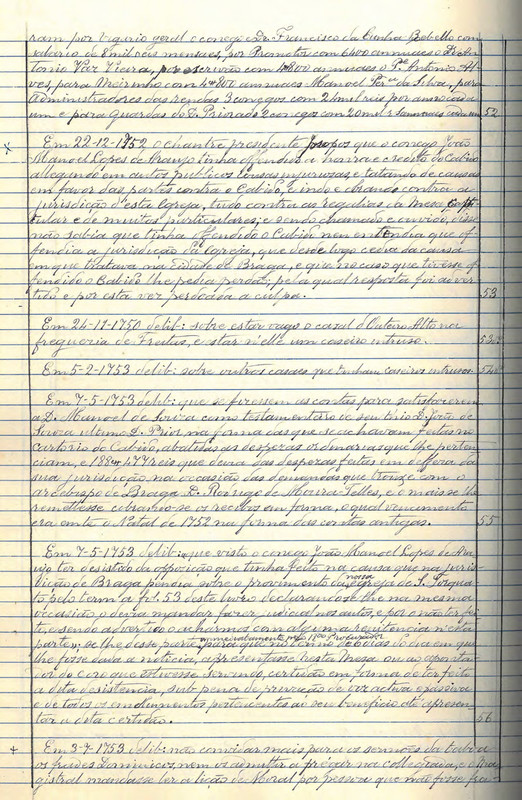 ram por vigario geral o conego Dr. Francisco da Cunha Rebello com
salario de 8 mil reis mensaes, por Promotor com 6400 annuaes o Dr. An-
tonio Vaz Vieira, por escrivão com 4800 annuaes o Pe. Antonio Al-
ves, para Meirinho com 4800 annuaes Manoel da Silva, para
administradores das rendas 3 conegos com mil reis por anno cada
um e para Guardas do D. Priorado 2 conegos com 20 mil rs annuaes cada um 52
Em 22-12-1752 o chantre presidente propos que o conego João
Manoel Lopes de Araujo tinha offendido a honra e credito do Cabido
allegando em autos publicos cousas injuriozas, e tratando de causas
em favor das partes contra o Cabido, e indo e obrando contra a
jurisdição d'esta Egreja, tudo contra as regalias da Meza Capi-
tular e de muitos particulares; e sendo chamado e ouvido, disse
não sabia que tinha offendido o Cabido nem entendia que of-
fendia a jurisdição da Egreja, que desde logo cedia da causa
em que tratava na cidade de Braga, e que no caso que tivesse of-
fendido o Cabido lhe pedia perdão; pela qual resposta foi adver-
tido e por esta vez perdoada a culpa. 53
Em 24-11-1750 delib: sobre estar vago o cazal d'Outeiro Alto na
freguezia de Freitas, e star n'elle um caseiro intruso. 53
Em 5-2-1753 delib: sobre outros casaes que tinham caseiros intrusos. 54
Em 7-5-1753 delib: que se fizessem as contas para satisfazerem
a D. Manoel de Souza como testamenteiro de seu tio D. João de
Souza ultimo D. Prior, na forma das que se achavam feitas no
cartorio do Cabido, abatidas as despezas ordinarias que lhe perten-
ciam, e 188 477 reis que devia das despezas feitas em deffeza da
sua jurisdicção na occasião das demandas que trouxe com o
arcebispo de Braga D. Rodrigo de Moura Telles, e o mais se lhe
remettesse cobrando-se os recibos em forma, e qual vencimento
era emté o Natal de 1752 na forma das contas antigas. 55
Em 7-5-1753 delib: que visto o conego João Manoel Lopes de Arau-
jo ter desistido da opposição que tinha feito na causa que na juris-
dicção de Braga pendia sobre o provimento da nossa egreja de S. Torquato,
pelo termo a fl. 53 deste livro declarando-se-lhe na mesma
occasião o devia mandar fazer judicial nos autos, e por o não ter fei-
to, e sendo advertido o acharmos com alguma renitencia n'esta
parte; se lhe désse para que no termo de dois do dia em que
immediatamente pelo nosso Procurador
lhe fosse dada a noticia, apresentasse n'esta Meza ou ao aponta-
dor do coro que estivesse servindo, certidão em forma de ter feito
a dita desistencia, sub pena de privação de voz activa e passiva
e de todos os emolumentos pertencentes ao seu beneficio até apresen-
tar a dita certidão. 56
Em 3-7-1753 delib: não convidar mais para os sermões da taboa
os frades Dominicos, nem os admittir a prégar na collegiada, e o Ma-
gistral mandasse ler a lição de Moral por pessoa que não fosse fra-